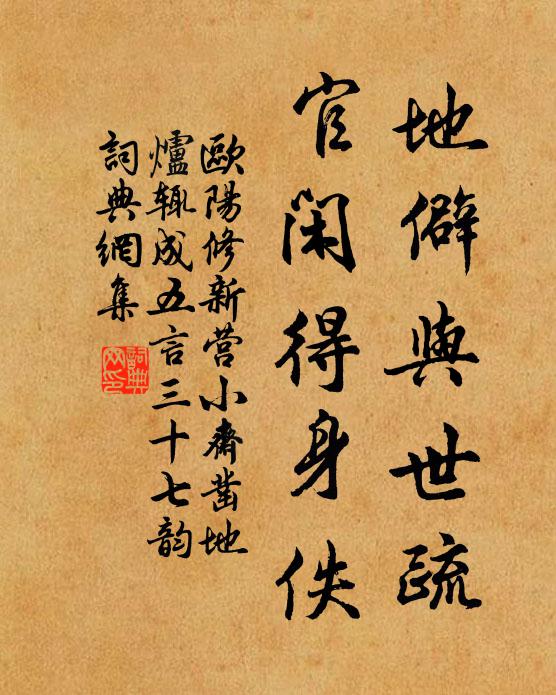 地僻與世疏
官閑得身佚
歐陽修新營小齋鑿地
爐輒成五言三十七韻
詞典網集
詞典網印